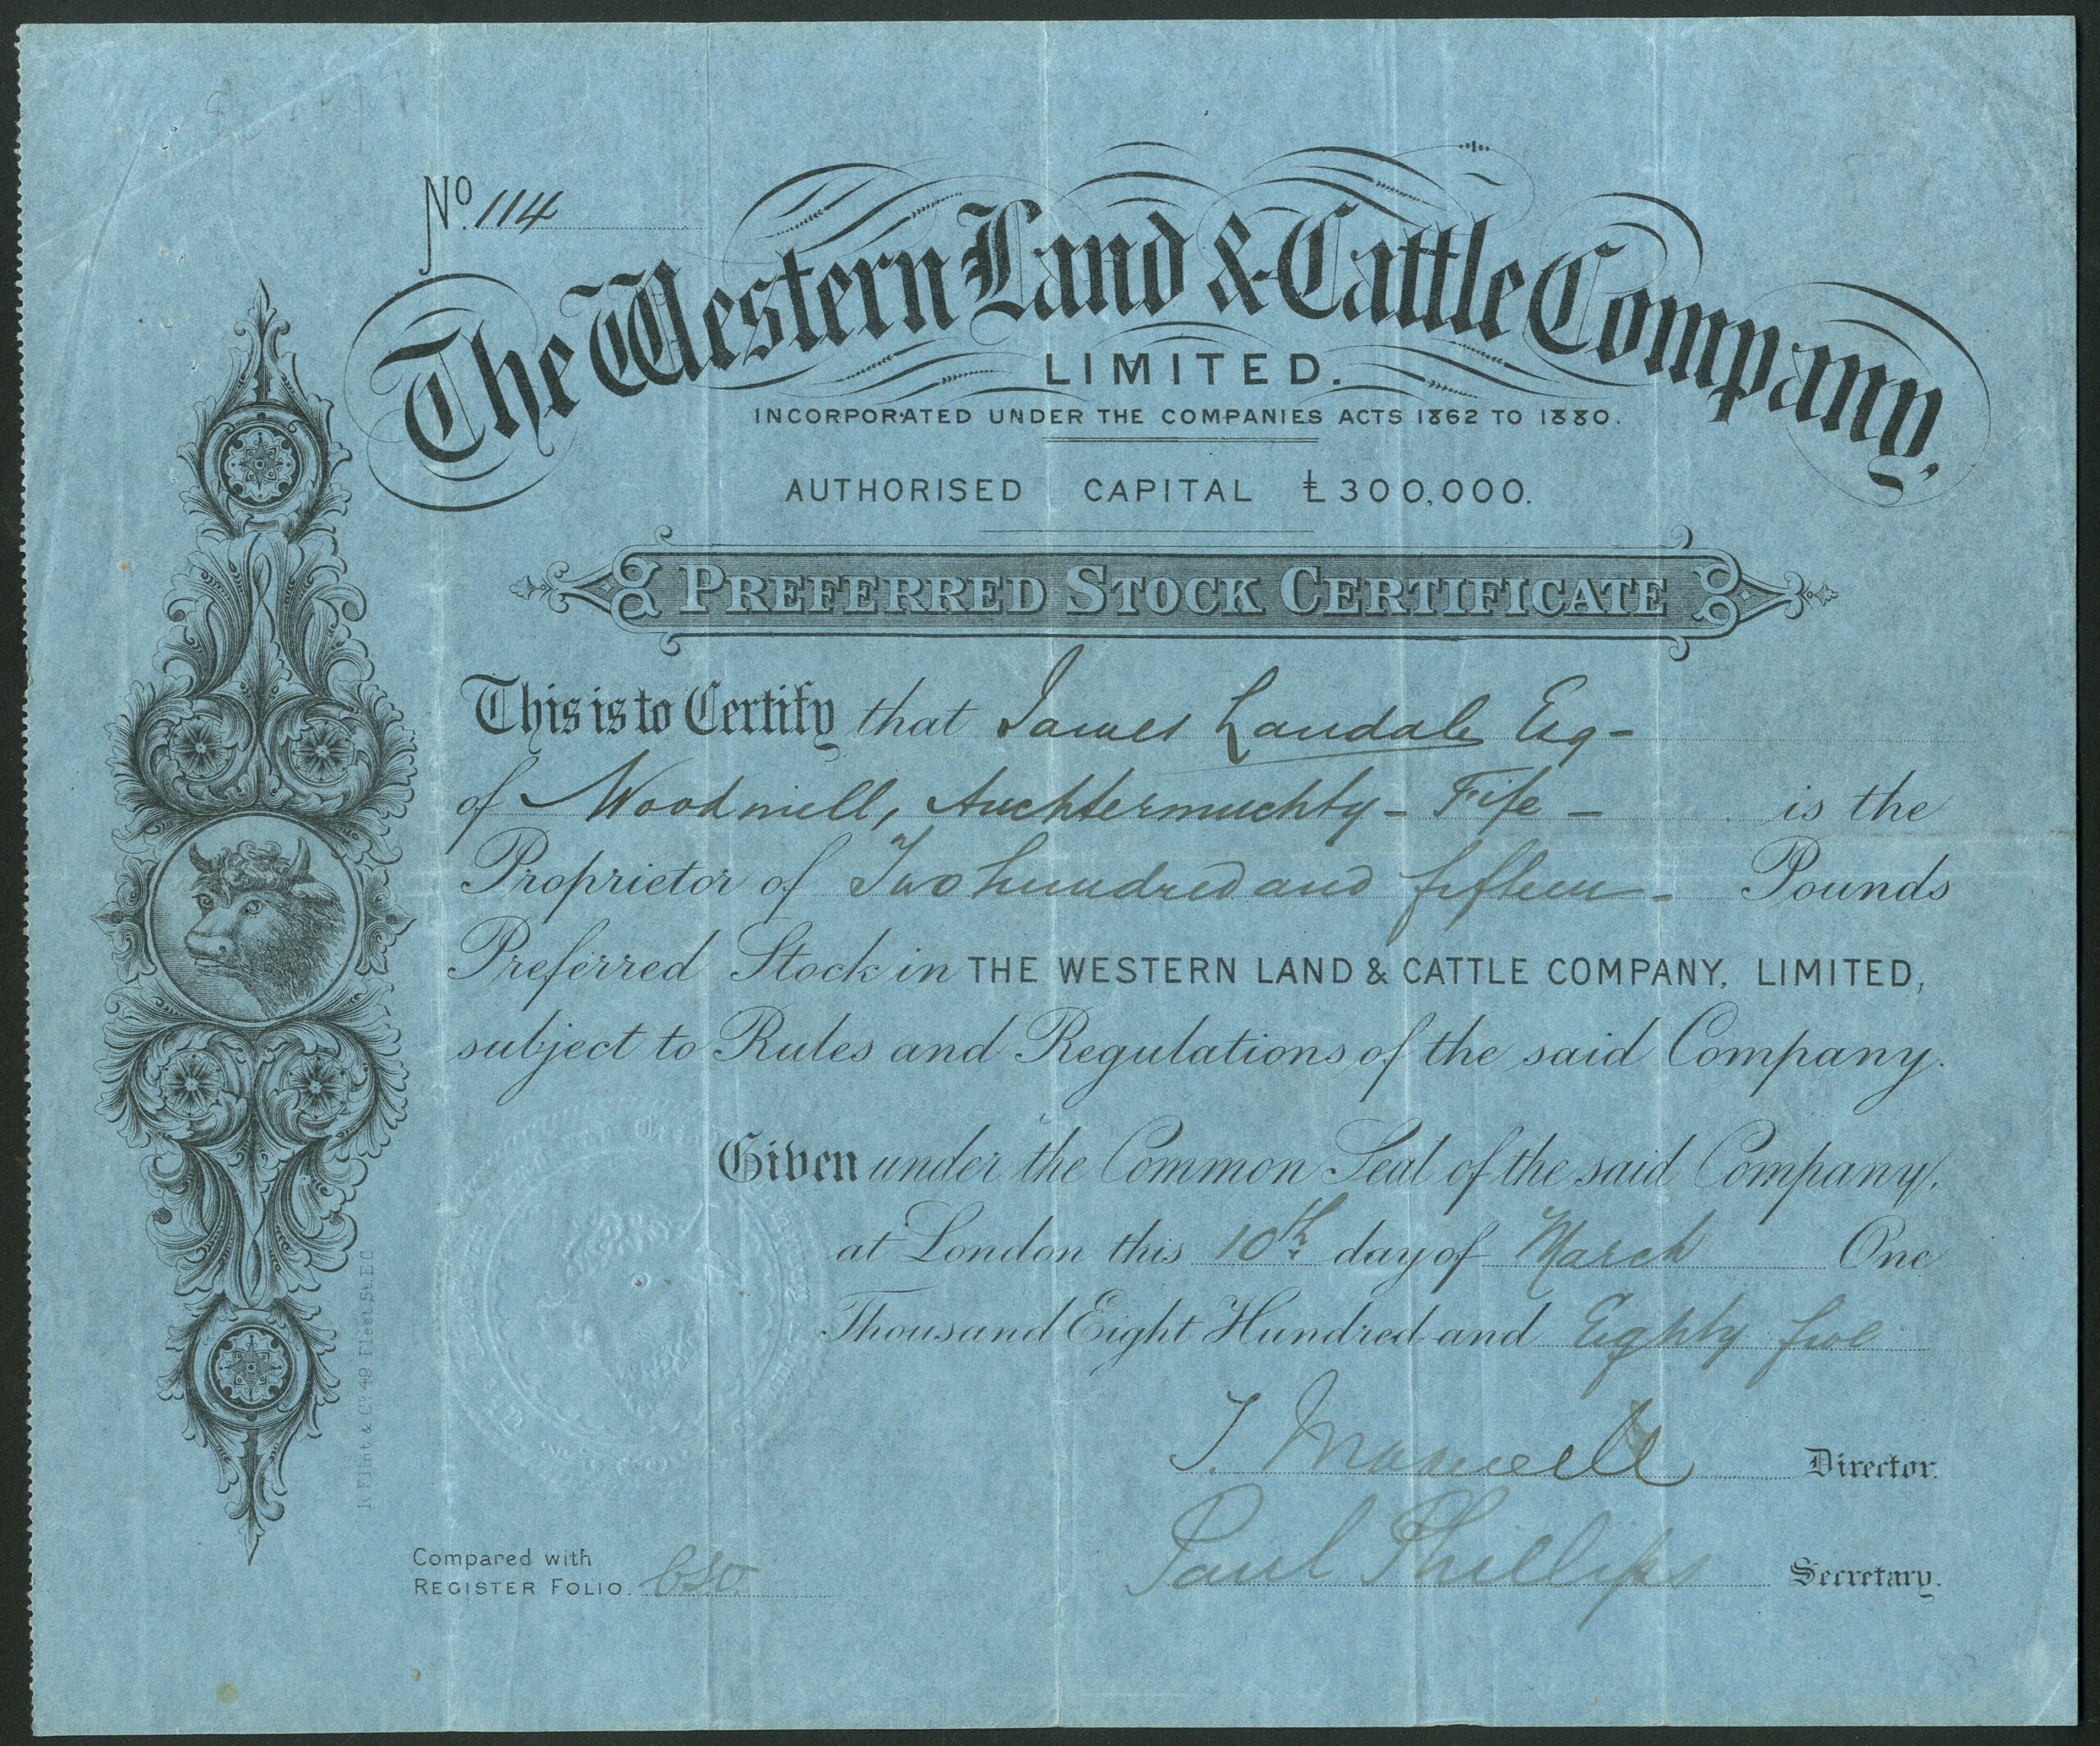 No. 114
The Western Land & Cattle Company,
LIMITED.
INCORPORATED UNDER THE COMPANIES ACTS 1862 TO 1880.
AUTHORISED CAPITAL £300,000.
PREFERRED STOCK CERTIFICATE
This is to Certify that James Landale Esq -
of Woodmill, Auchtermuchty - Fife - is the
Proprietor of Two hundred and fifteen - Pounds
Preferred Stock in THE WESTERN LAND & CATTLE COMPANY, LIMITED,
subject to Rules and Regulations of the said Company.
Given under the Common Seal of the said Company,
at London this 10th day of March One
Thousand Eight Hundred and Eighty five
Director.
Paul Phillips Secretary.
Compared with
REGISTER FOLIO.
Flint & Co. 49 Fleet St. E.C.